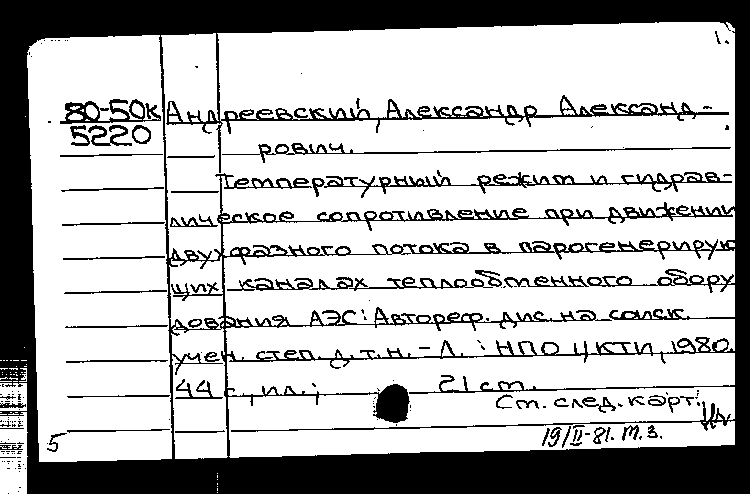 1.
80-50к Андреевский, Александр Александ-
5220 рович.
Температурный режим и гидрав-
лическое сопротивление при движении
двухфазного потока в парогенерирую
щих каналах теплообменного обору
дования АЭС: Автореф. дис. на соиск.
учен. степ. д.т.н. - Л. : НПО ЦКТИ, 1980.
44 с., ил.; 21 см.
См. след. карт.
19/II-81. т.з.
5